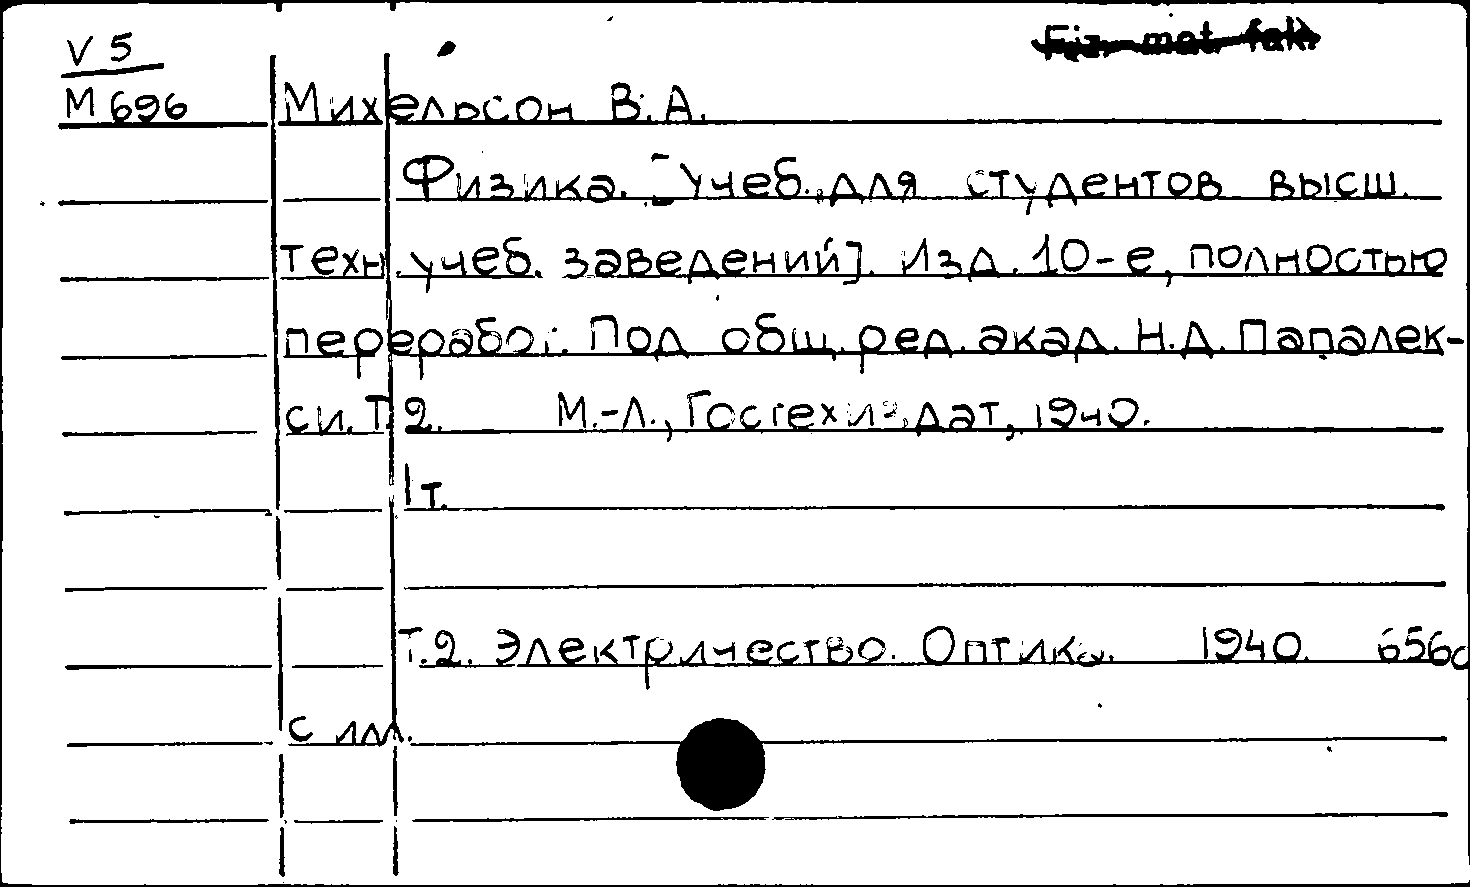 V 5
Fiz. mat. fak.
М 696 Михельсон В.А.
Физика. [Учеб. для студентов высш.
техн. учеб. заведений]. Изд. 10-е, полностью
переработ. Под общ. ред. акад. Н.Д. Папалек-
си. Т. 2. М.-Л., Гостехиздат, 1940.
1 т.
Т.2. Электричество. Оптика. 1940. 656с
с ил.